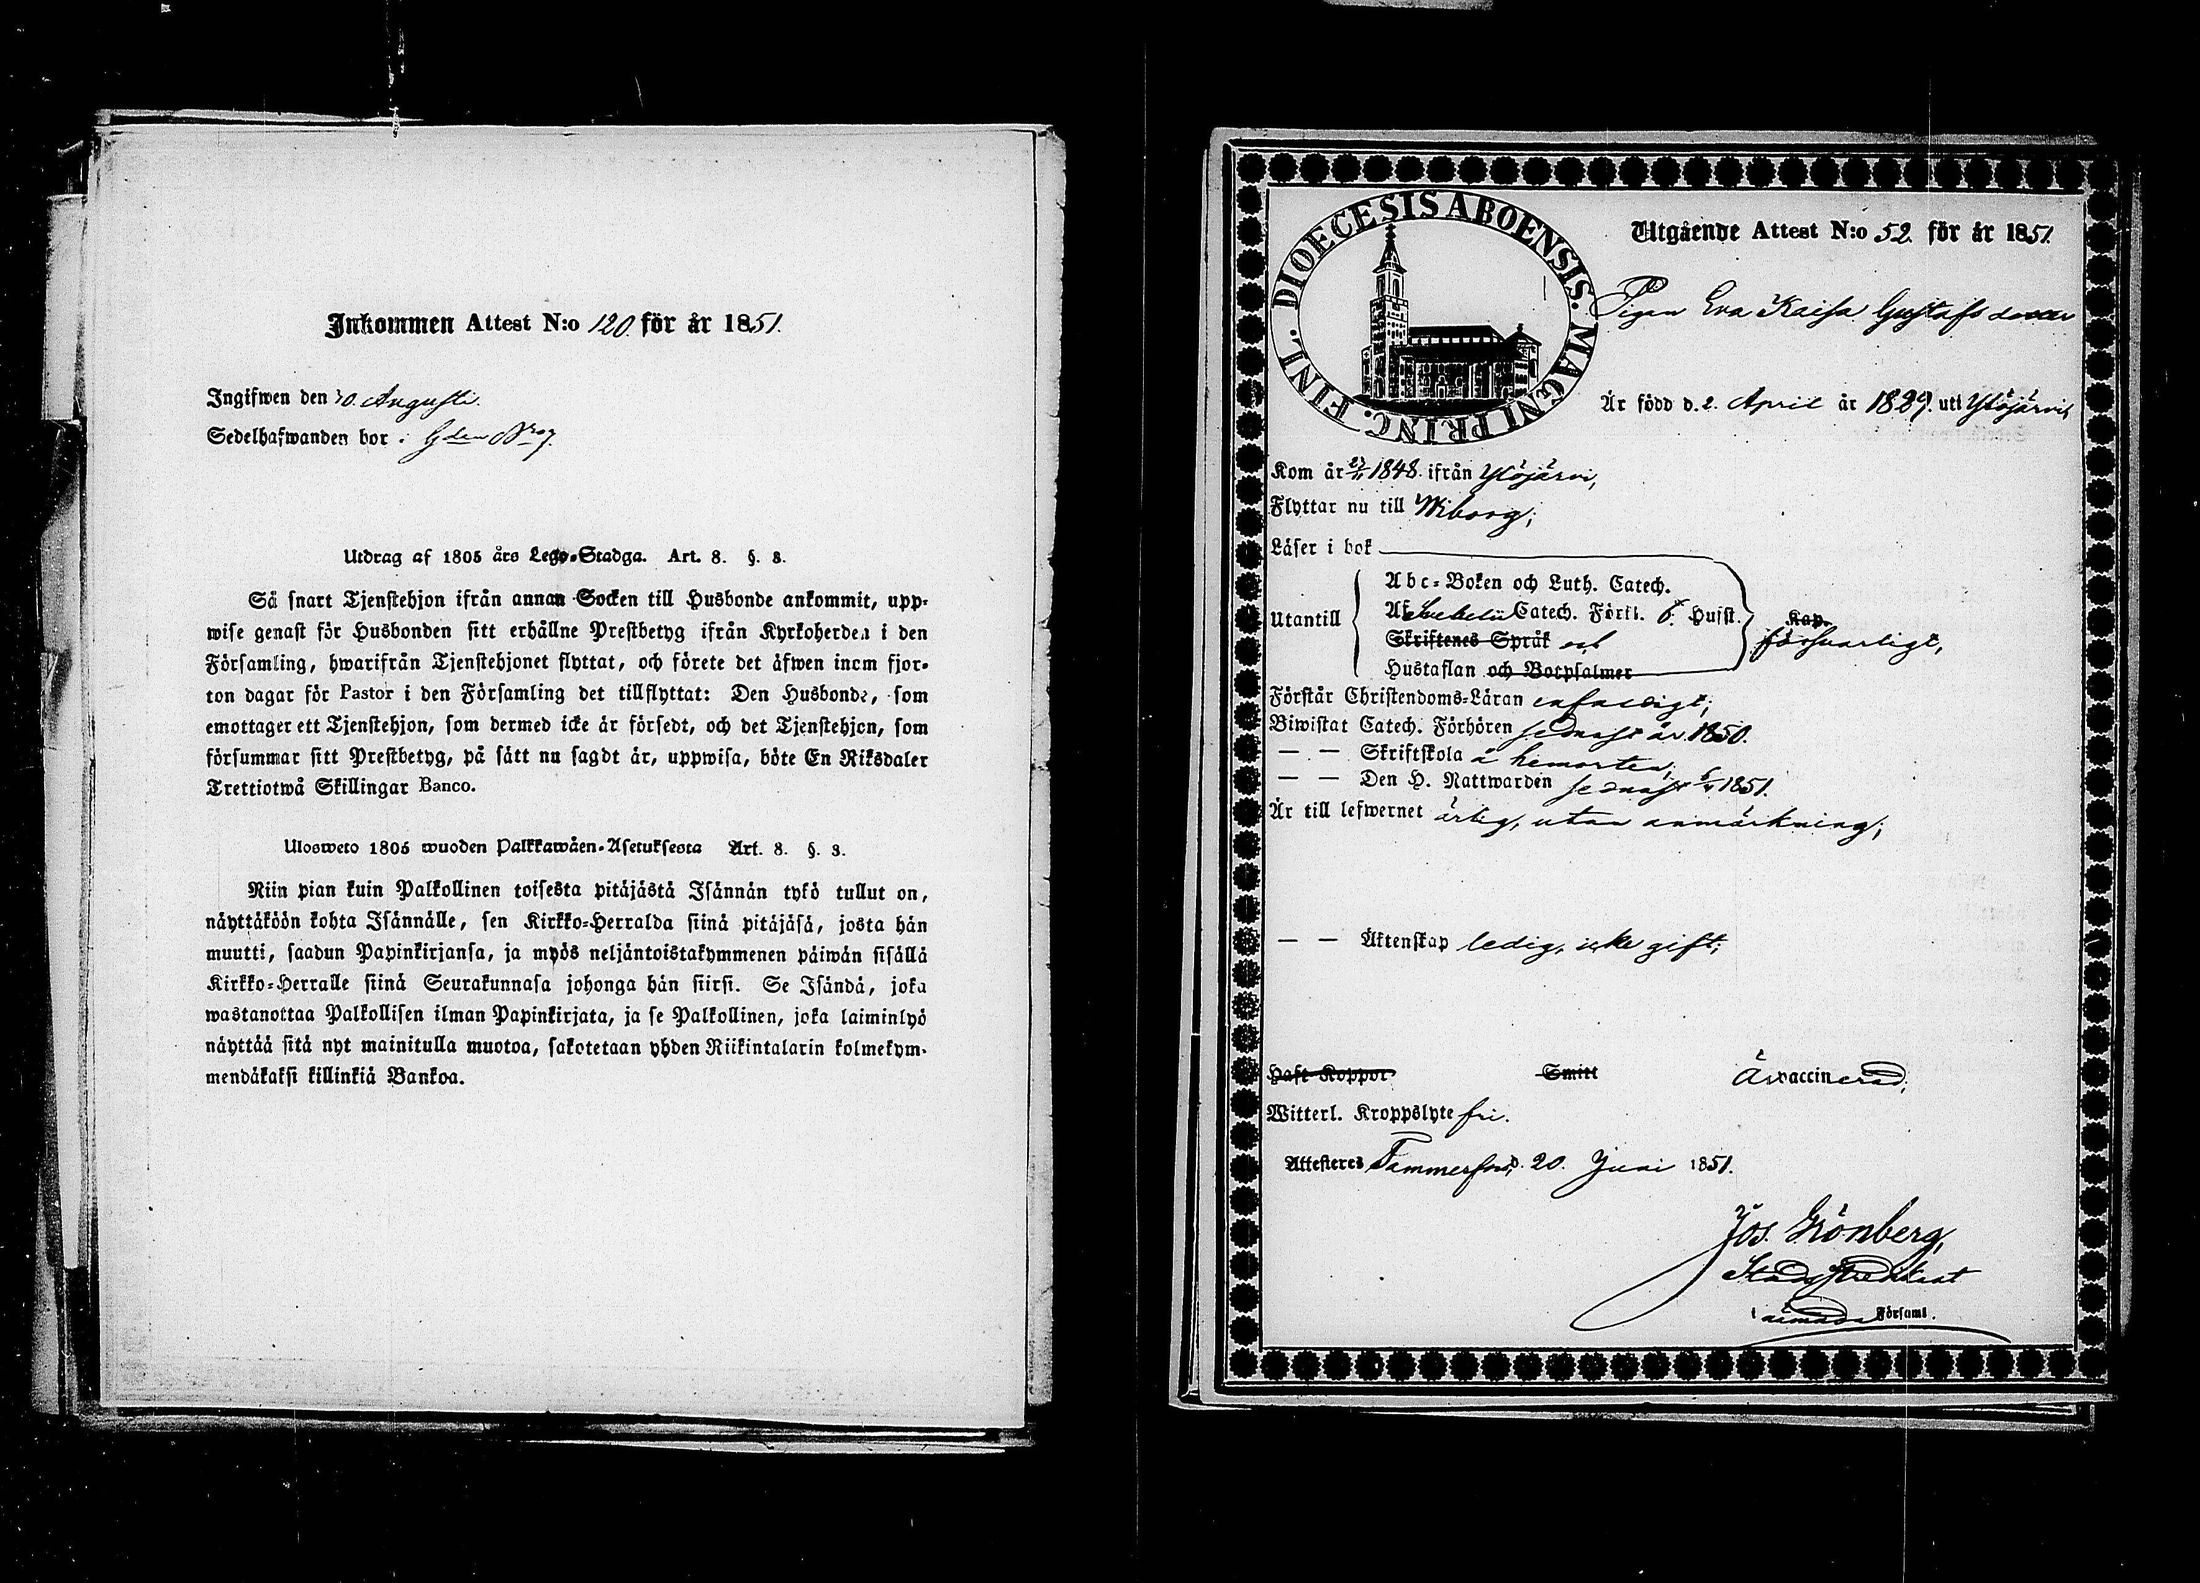 Inkommen Attest N:o 120 för år 1851.
Ingifwen den 30. Augusti.
Sedelhafwanden bor i
Utdrag af 1805 års Lego-Stadga. Art. 8. §. 3.
Så snart Tjenstehjon ifrån annan Socken till Husbonde ankommit, upp-
wise genast för Husbonden sitt erhållne Prestbetyg ifrån Kyrkoherden i den
Församling, hwarifrån Tjenstehjonet flyttat, och förete det äfwen inom fjor-
ton dagar för Pastor i den Församling det tillflyttat: Den Husbonde, som
emottager ett Tjenstehjon, som dermed icke är försedt, och det Tjenstehjon, som
försummar sitt Prestbetyg, på sätt nu sagdt är, uppwisa, böte En Riksdaler
Trettiotwå Skillingar Banco.
Ulosweto 1805 wuoden Palkkawäen-Asetuksesta Art. 8. §. 3.
Niin pian kuin Palkollinen toisesta pitäjästä Isännän tykö tullut on,
näyttäköön kohta Isännälle, sen Kirkko-Herralda siinä pitäjäsä, josta hän
muutti, saadun Papinkirjansa, ja myös neljäntoistakymmenen päiwän sisällä
Kirkko-Herralle siinä Seurakunnasa johonga hän siirsi. Se Isändä, joka
wastanottaa Palkollisen ilman Papinkirjata, ja se Palkollinen, joka laiminlyö
näyttää sitä nyt mainitulla muotoa, sakotetaan yhden Riikintalarin kolmekym-
mendäkaksi killinkiä Bankoa.
DIOECESIS ABOENSIS. MAGNI PRINC. FINL.
Utgående Attest N:o 52 för år 1851.
Pigan Eva Kaisa Gustafs dotter
Är född d. 2. April år 1829. uti Ylöjärvi,
Kom år 1848. ifrån Ylöjärvi,
Flyttar nu till Wiborg;
Läser i bok
Abc-Boken och Luth. Catech.
Utantill Af Svebelii Catech. Förkl. 6. Husst. Kap.
Skriftenes Språk och försvarligt,
Hustaflan och Botpsalmer
Förstår Christendoms-Läran enfaldigt;
Biwistat Catech. Förhören sednast år 1850.
— — Skriftskola å hemorten;
— — Den H. Nattwarden sednast 1851.
Är till lefwernet ärlig, utan anmärkning;
— — Äktenskap ledig, icke gift;
Haft Koppor Smitt Är vaccinerad;
Witterl. Kroppslyte fri.
Attesteres Tammerfors d. 20. Juni 1851.
Jos. Grönberg,
Stadspredikant
i nämnda Församl.